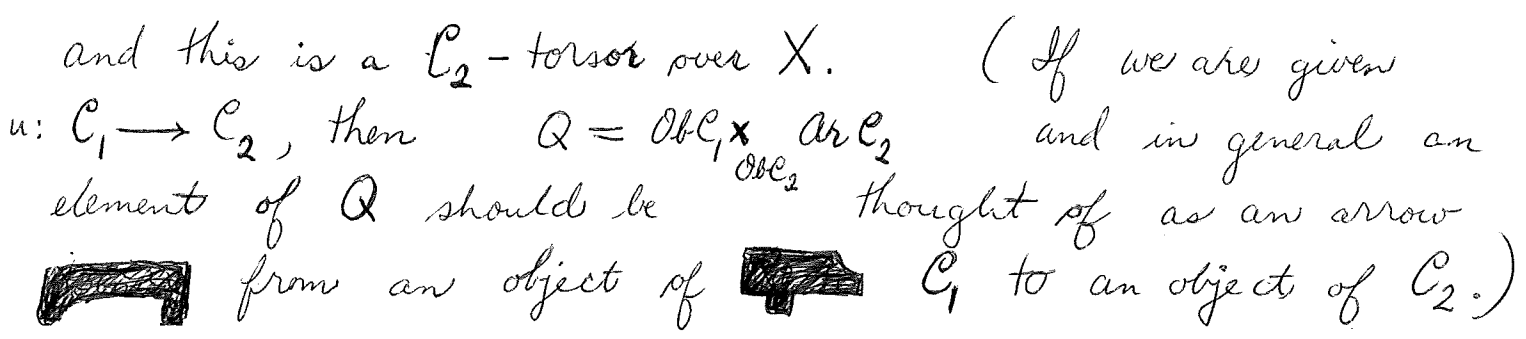 and this is a C₂ - torsor over X. ( If we are given
u: C₁ → C₂, then Q = ObC₁ ×_{ObC₂} ArC₂ and in general an
element of Q should be thought of as an arrow
from an object of C₁ to an object of C₂.)